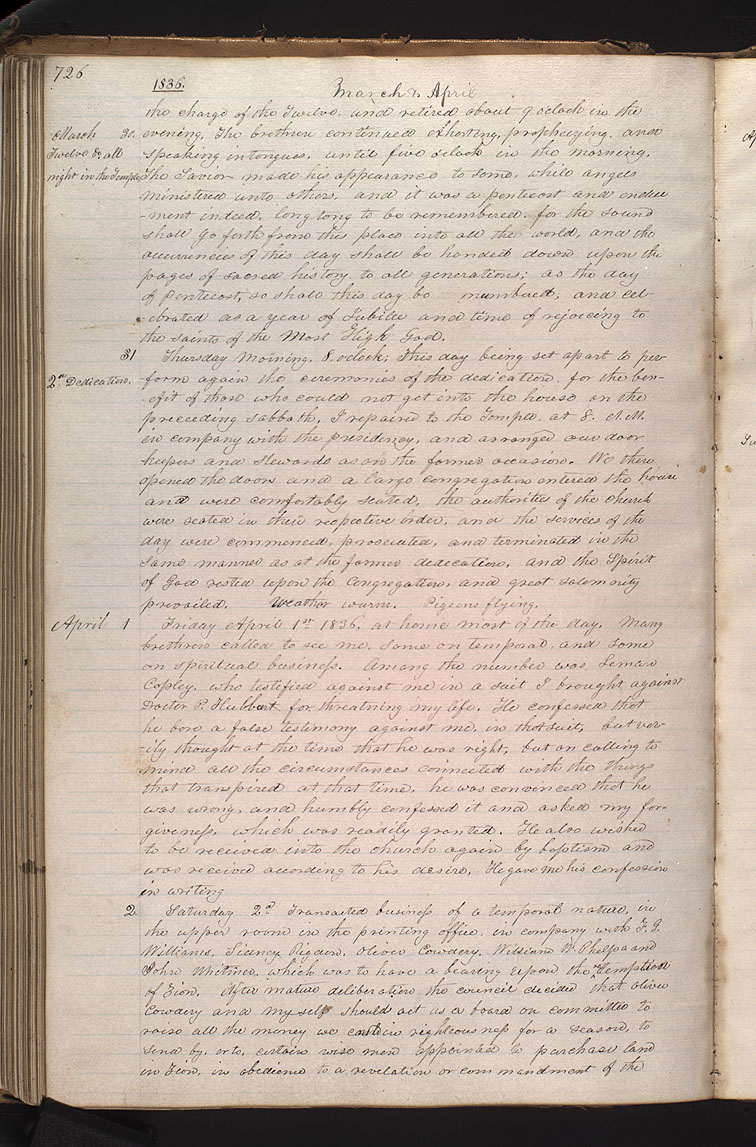 726
1836.
March & April
the charge of the Twelve, and retired about 9 oclock in the
March 30. evening, The brethren continued exhorting, prophecying, and
Twelve &c all speaking in tongues, until five o'clock in the morning,
night in the Temple The Savior made his appearance to some, while angels
ministered unto others, and it was a pentecost and endue
-ment indeed, long long to be remembered, for the sound
shall go forth from this place into all the world, and the
occurrences of this day shall be handed down upon the
pages of sacred history to all generations; as the day
of Pentecost, so shall this day be numbered, and cel-
-ebrated as a year of Jubilee and time of rejoicing to
the saints of the Most High God.
31 Thursday Morning, 8, oclock; This day being set apart to per-
2nd Dedication. -form again the ceremonies of the dedication for the ben-
-efit of those who could not get into the house on the
preceeding sabbath, I repaired to the Temple at 8. A.M.
in company with the presidency, and arranged our door
keepers and stewards as on the former occasion. We then
opened the doors and a large congregation entered the house
and were comfortably seated, the authorities of the church
were seated in their respective order, and the services of the
day were commenced, prosecuted, and terminated in the
same manner as at the former dedication, and the Spirit
of God rested upon the congregation, and great solemnity
prevailed. Weather warm. Pigeons flying.
April 1 Friday April 1st 1836, at home most of the day. Many
brethren called to see me, some on temporal, and some
on spiritual business. Among the number was Leman
Copley, who testified against me in a suit I brought against
Doctor P. Hulburt, for threatning my life. He confessed that
he bore a false testimony against me, in that suit, but ver-
-ily thought at the time that he was right, but on calling to
mind all the circumstances connected with the things
that transpired at that time, he was convinced that he
was wrong, and humbly confessed it and asked my for-
giveness, which was readily granted. He also wished
to be received into the church again by baptism and
was received according to his desire, He gave me his confession
in writing
2 Saturday 2d Transacted business of a temporal nature, in
the upper room in the printing office, in company with F. G.
Williams, Sidney Rigdon, Oliver Cowdery, William W. Phelps and
John Whitmer, which was to have a bearing upon the redemption
of Zion. After mature deliberation the council decided that Oliver
Cowdery and myself should act as a board or committee to
raise all the money we could in righteousness for a season, to
send by, or to, certain wise men appointed to purchase land
in Zion, in obedience to a revelation or commandment of the